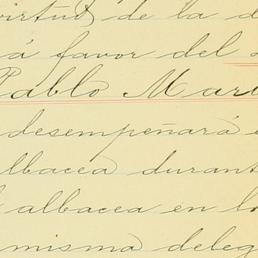 virtud de la d
á favor del
Pablo Mar
desempeñará e
lbacea durant
albacea en lo
misma deleg